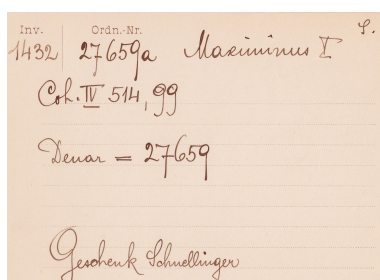 Inv. Ordn.-Nr. S.
1432 27659a Maximinus I
Coh. IV 514, 99
Denar = 27659
Geschenk Schnellinger